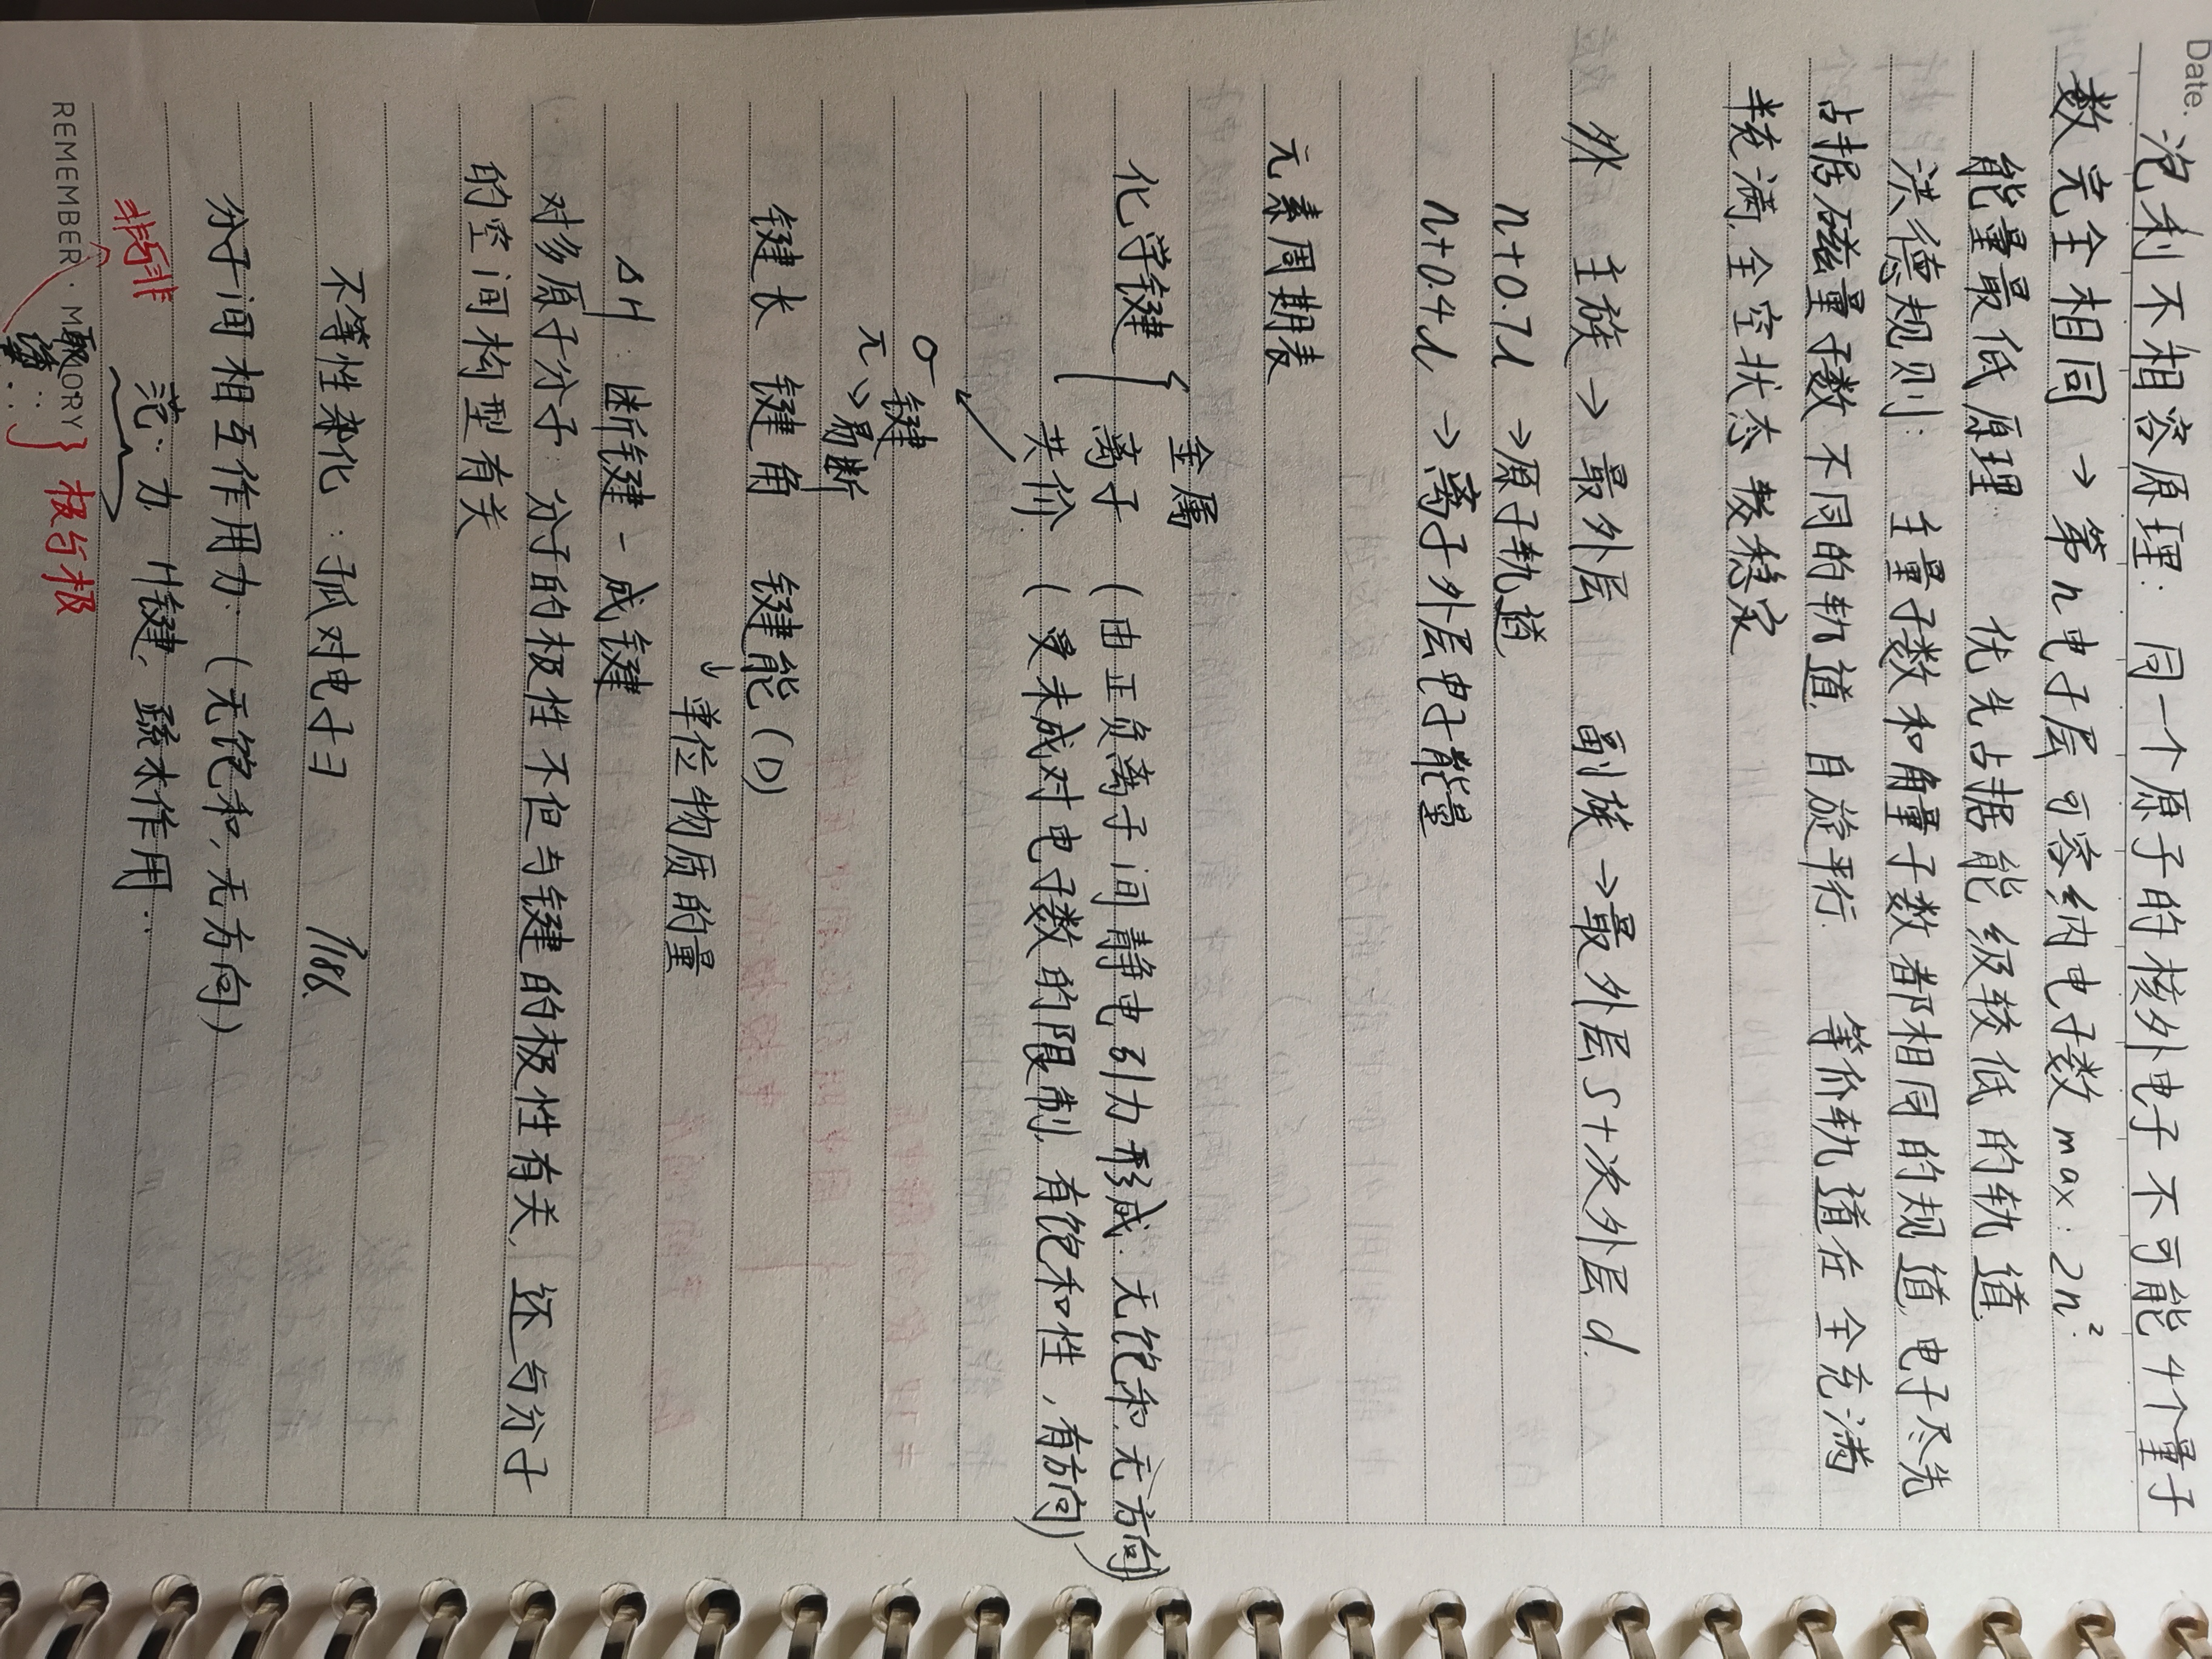 Date.
泡利不相容原理: 同一个原子的核外电子不可能4个量子
数完全相同 → 第n电子层可容纳电子数max: 2n².
能量最低原理: 优先占据能级较低的轨道.
洪德规则: 主量子数和角量子数都相同的规道,电子尽先
占据磁量子数不同的轨道,自旋平行. 等价轨道在全充满
半充满,全空状态较稳定
外 主族→最外层 副族→最外层s+次外层d.
n+0.7l →原子轨道.
n+0.4l →离子外层电子能量
元素周期表
金属
化学键{ 离子 (由正负离子间静电引力形成. 无饱和,无方向)
共价 (受未成对电子数的限制,有饱和性,有方向)
σ键
π〃易断
键长 键角 键能(D)
↓单位物质的量
ΔH: 断键-成键
对多原子分子: 分子的极性不但与键的极性有关,还与分子
的空间构型有关
不等性杂化: 孤对电子 P186.
分子间相互作用力. (无饱和,无方向)
范:力 H键, 疏水作用..
非与非
REMEMBER · MEMORY
取:
诱:
} 极与极